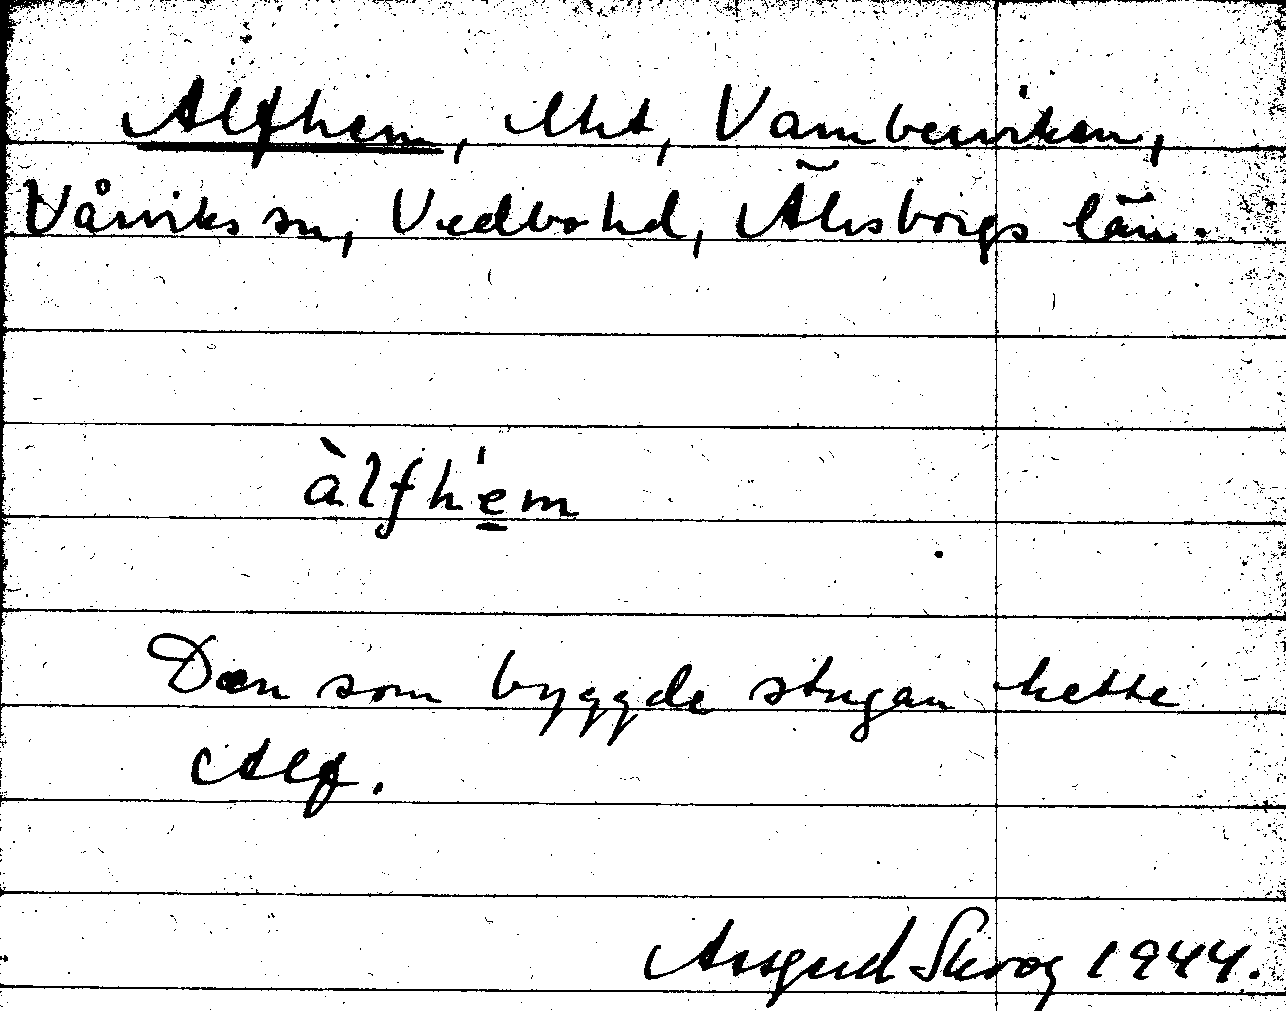 Alfhem, lht, Vambenviken,
Vårviks sn, Vedbo hd, Älvsborgs län.
àlfh'em
Den som byggde stugan hette
Alf.
Skog 1944.